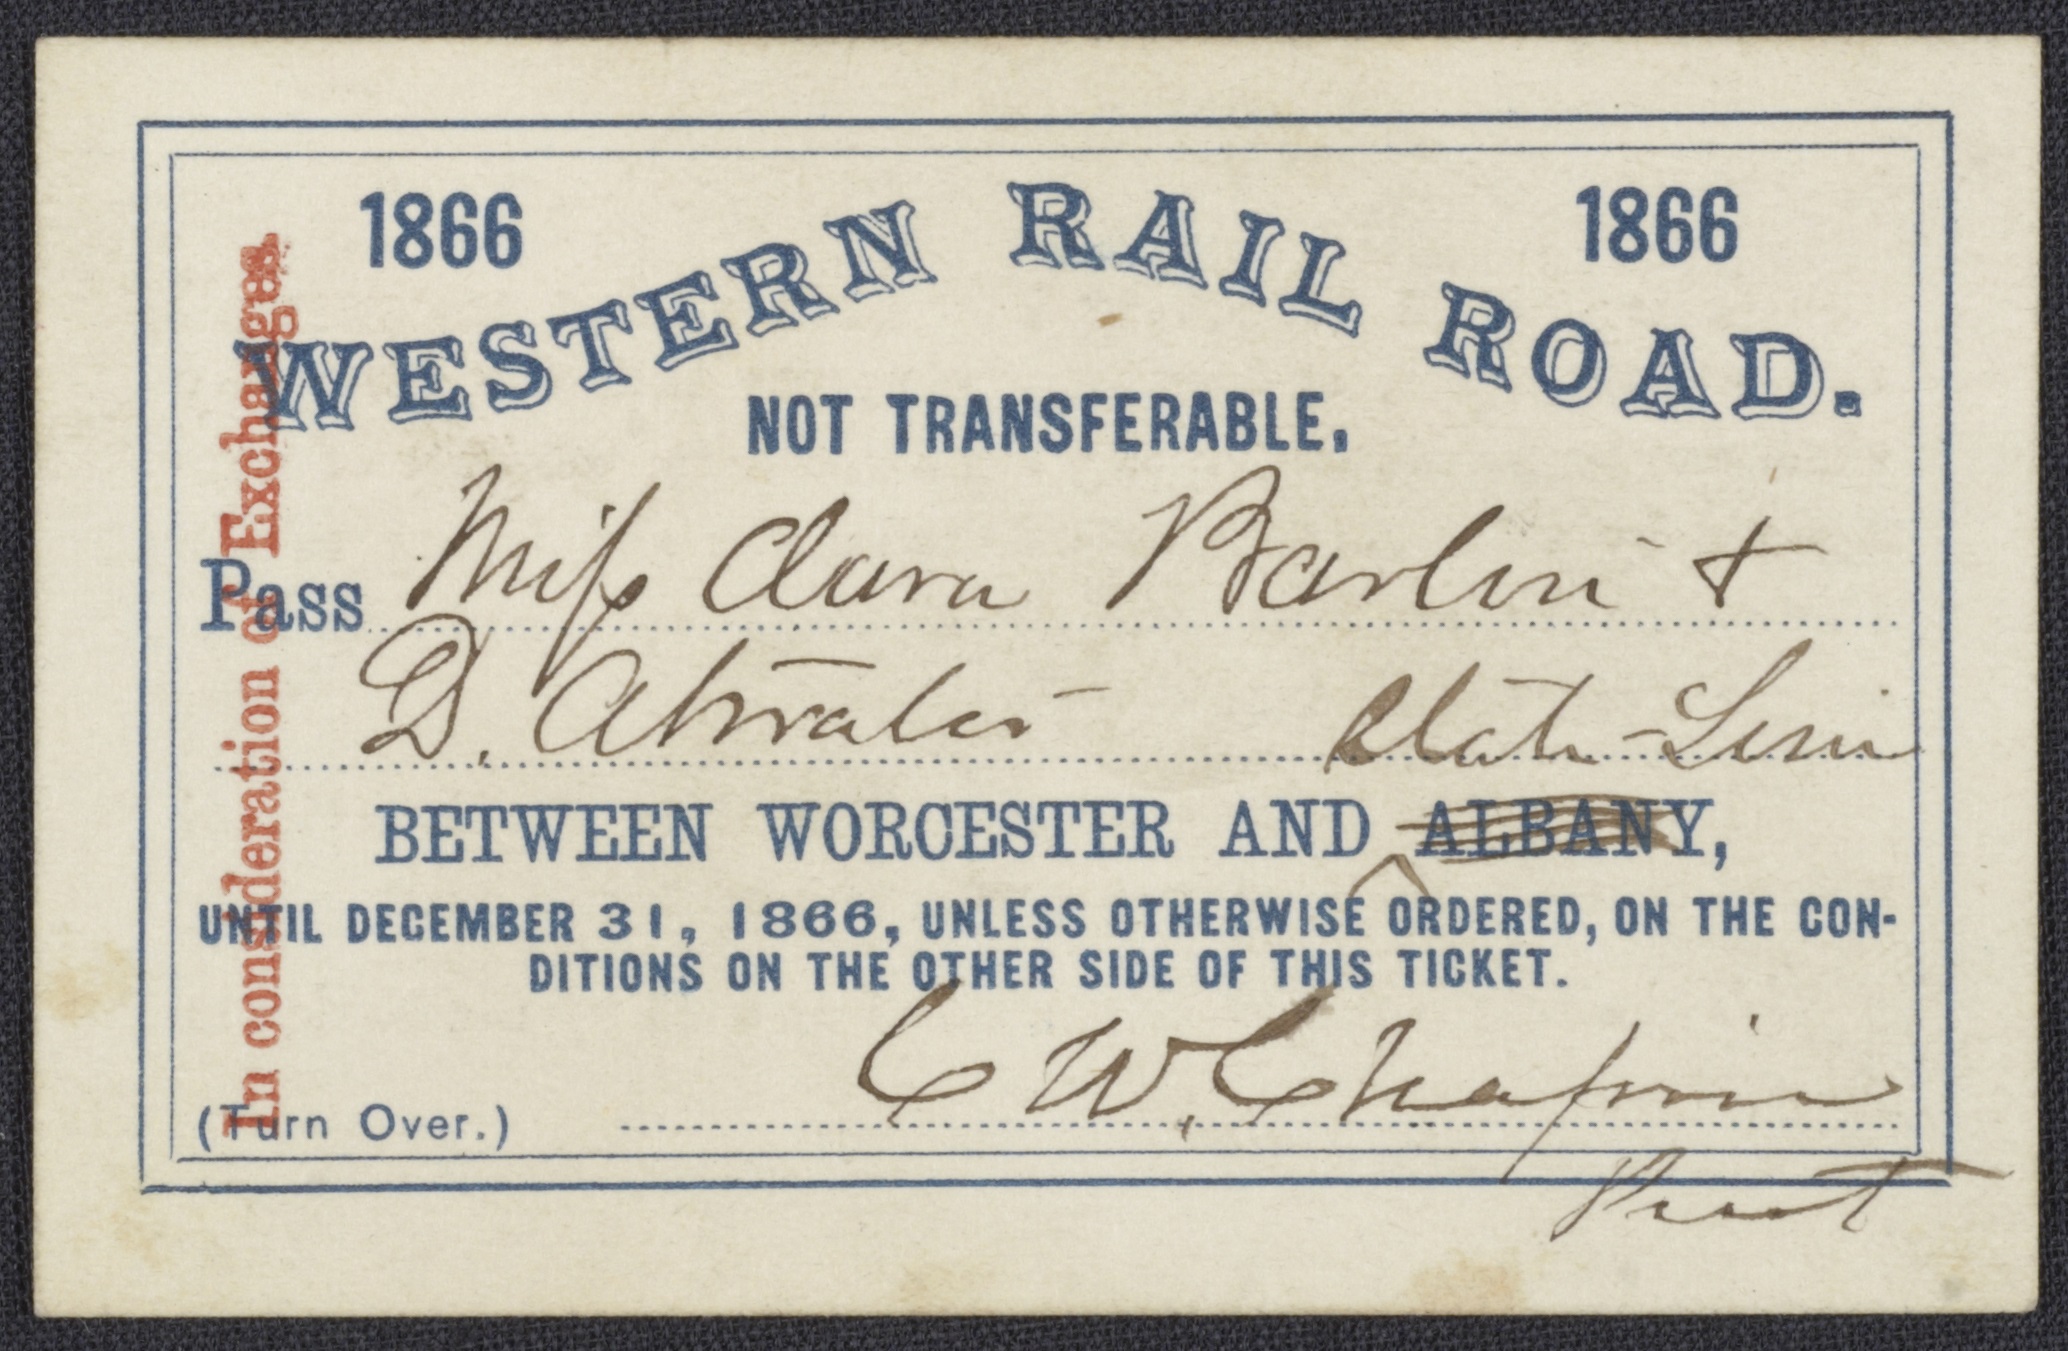 1866 1866
WESTERN RAIL ROAD.
NOT TRANSFERABLE.
Pass Miss Clara Barton &
D. Atwater State Line
BETWEEN WORCESTER AND ALBANY,
UNTIL DECEMBER 31, 1866, UNLESS OTHERWISE ORDERED, ON THE CON-
DITIONS ON THE OTHER SIDE OF THIS TICKET.
C W. Chapin
(Turn Over.)
Prest
In consideration of Exchanges.